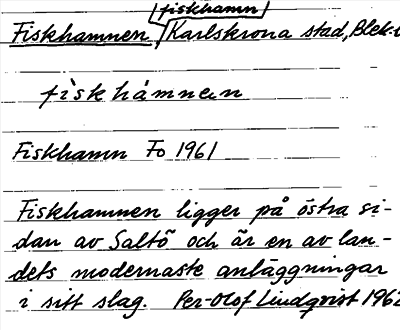 fiskhamn
Fiskhamnen, Karlskrona stad, Blek-
fìskhámnen
Fiskhamn Fo 1961
Fiskhamnen ligger på östra si-
dan av Saltö och är en av lan-
dets modernaste anläggningar
i sitt slag. Per-Olof Lindqvist 1962